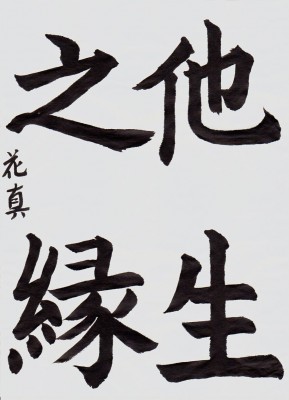 他生
之縁
花真